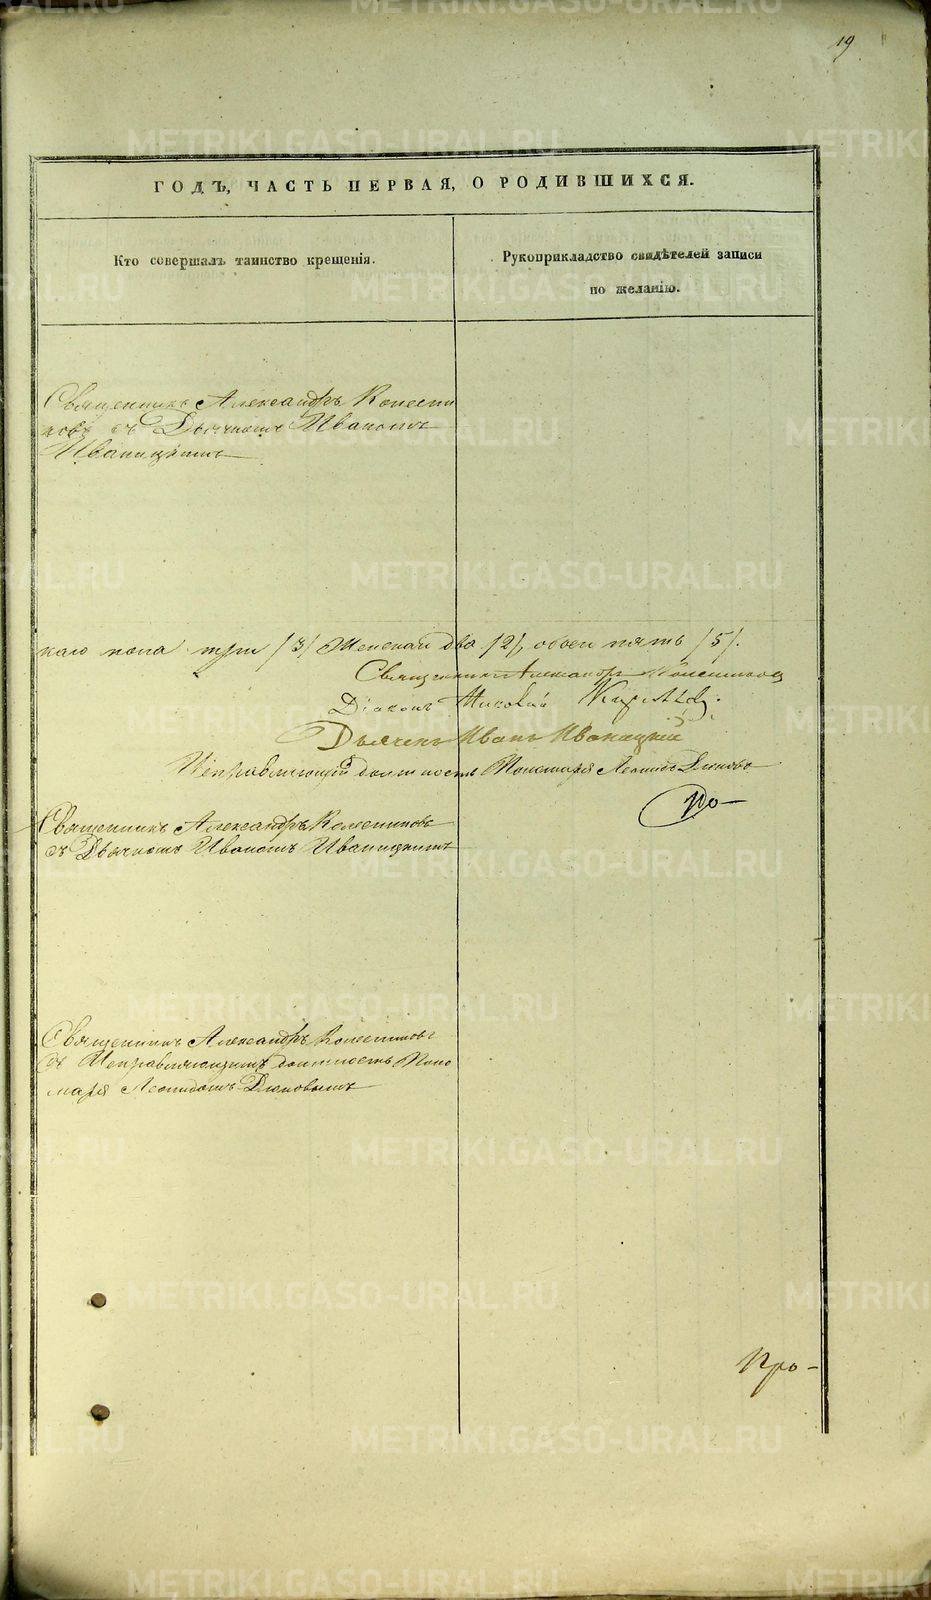 19
ГОДЪ, ЧАСТЬ ПЕРВАЯ, О РОДИВШИХСЯ.
Кто совершалъ таинство крещенія.
Рукоприкладство свидѣтелей записи
по желанію.
Священникъ Александръ Колесни
ковъ съ Дьячкомъ Иваномъ
Иваницкимъ
каго пола три /3/ Женскаго два /2/, обоего пять /5/.
Священникъ Александръ Колесников
Діаконъ Николай
Дьячекъ Иванъ Иваницкий
Исправляющій должность Пономаря Леонидъ
Священникъ Александръ Колесниковъ
съ Дьячкомъ Иваномъ Иваницкимъ
Священникъ Александръ Колесниковъ
съ Исправляющимъ должность Поно
маря Леонидомъ
Про-
METRIKI.GASO-URAL.RU